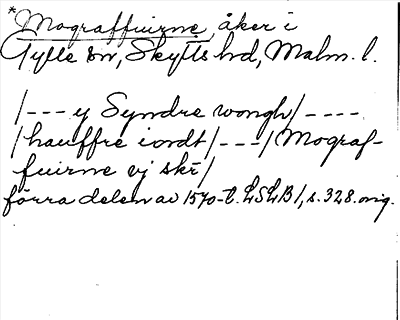 *Mograffuirne, åker i
Gylle sn, Skytts hd, Malm. l.
/--- y Syndre wongh/----
/hauffre iordt/---/Mograf-
fuirne vj skr/
förra delen av 1570-t. LSLB1, s. 328. orig.